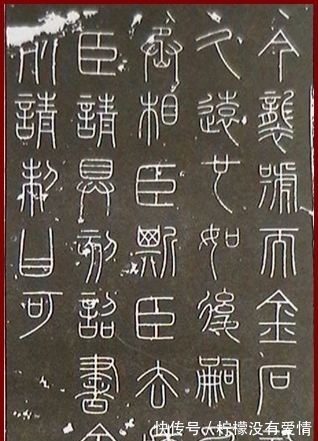 今襲號而金石
久遠也如後嗣
丞相臣斯臣去
臣請具刻詔書金
死請制曰可
快传号/柠檬没有爱情